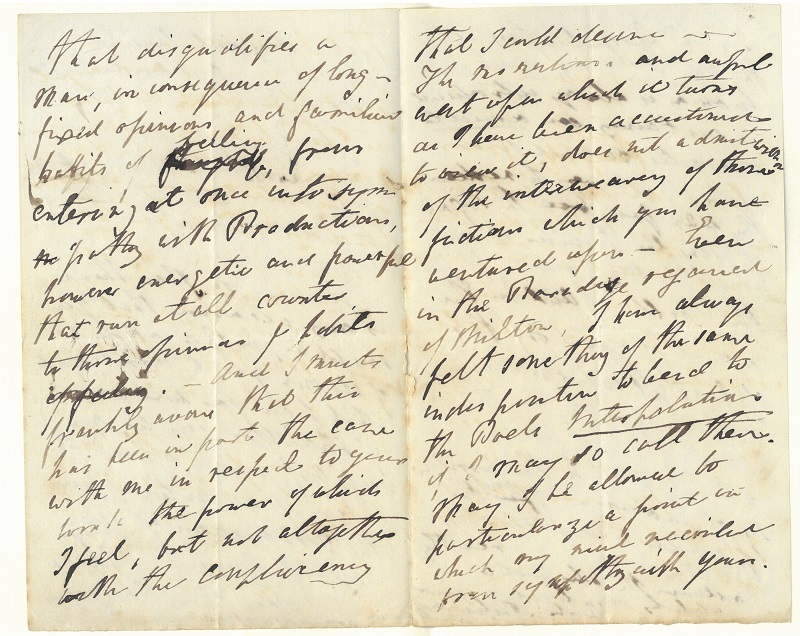 that disqualifies a
man, in consequence of long-
fixed opinions and familiar
habits of feeling, from
entering at once into sym
pathy with Productions,
however energetic and powerful
that run at all counter
to those opinions & habits
. – And I must
frankly avow that this
has been in part the case
with me in respect to your
work the power of which
I feel, but not altogether
with the complacency
that I could desire –
The and awful
event upon which it turns
as I have been accustomed
to view it, does not admit with me
of the interweaving of those
fictions which you have
ventured upon – Even
in the Paradise regained
of Milton, I have always
felt something of the same
indisposition to bend to
the Poets Interpolations
if I may so call them.
May I be allowed to
particularize a point in
which my mind
from sympathy with yours.